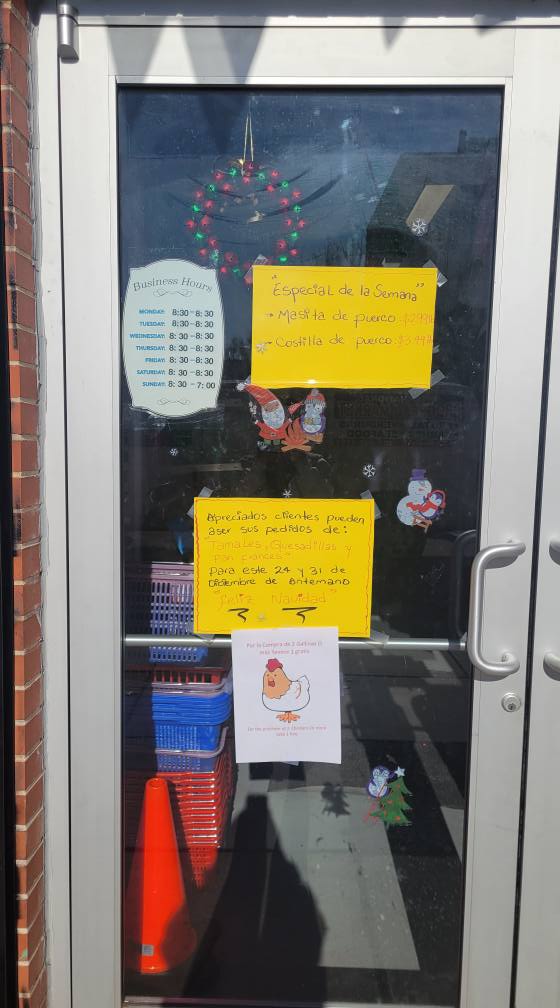 Business Hours
MONDAY: 8:30-8:30
TUESDAY: 8:30-8:30
WEDNESDAY: 8:30-8:30
THURSDAY: 8:30-8:30
FRIDAY: 8:30-8:30
SATURDAY: 8:30-8:30
SUNDAY: 8:30-7:00
"Especial de la Semana"
→ Masita de puerco
→ Costilla de puerco
Apreciados clientes pueden
aser sus pedidos de:
"Tamales, Quesadillas y
Pan Frances"
Para este 24 y 31 de
Diciembre de Antemano
"Feliz Navidad"
Por la Compra de 2 Gallinas o
mas llevece 1 gratis